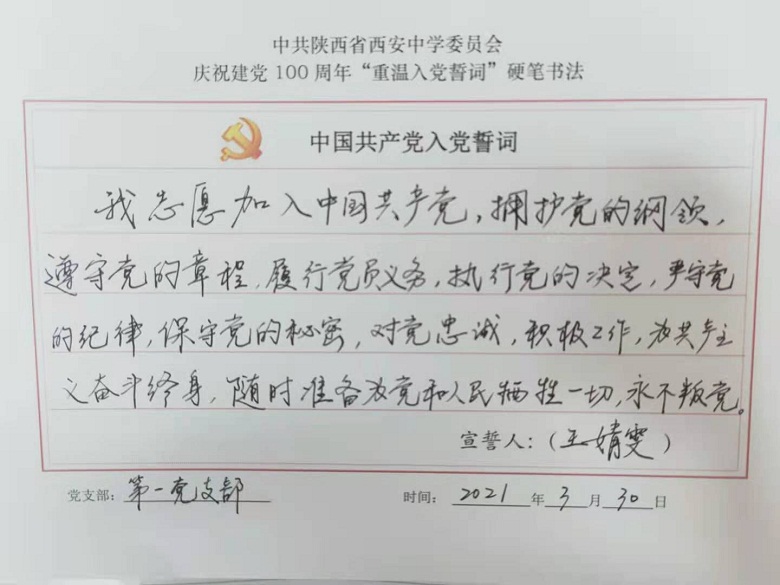 中共陕西省西安中学委员会
庆祝建党 100 周年“重温入党誓词”硬笔书法
中国共产党入党誓词
我志愿加入中国共产党，拥护党的纲领，
遵守党的章程，履行党员义务，执行党的决定，严守党
的纪律，保守党的秘密，对党忠诚，积极工作，为共产主
义奋斗终身，随时准备为党和人民牺牲一切，永不叛党。
宣誓人：（王婧雯）
党支部：第一党支部 时间：2021 年 3 月 30 日